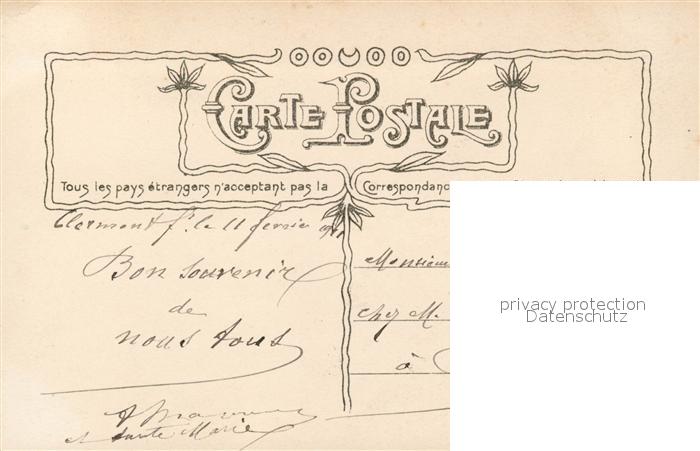 CARTE POSTALE
Tous les pays étrangers n'acceptant pas la Correspondanc
Clermont Fd. le 11 fevrier
Bon souvenir
de
nous tous
et tante Marie
Monsieu
chez M.
à
privacy protection
Datenschutz